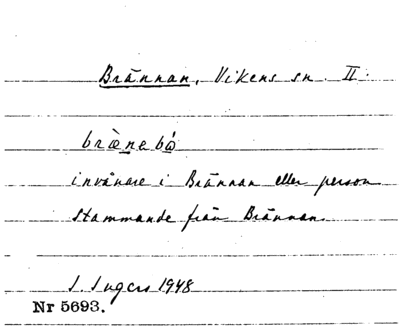 Brännan, Vikens sn. II.
bræ̀nebó̱
invånare i Brännan eller person
stammande från Brännan.
I. Ingers 1948
Nr 5693.